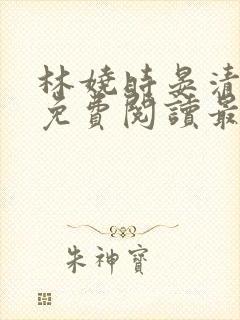 林嬈時晏清
免費閱讀最
朱神寶